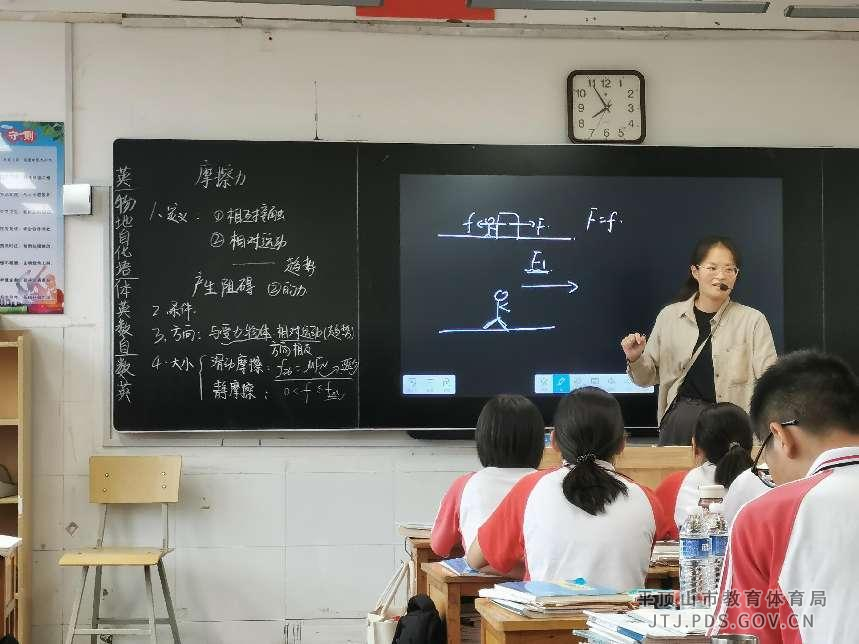 守则
英
物
地
自
化
语
体
英
数
自
数
英
摩擦力
1、定义: ①相互接触
②相对运动
趋势
产生阻碍 ③的力
2.条件.
3.方向: 与受力物体 相对运动(趋势)
方向相反
4.大小 { 滑动摩擦: f滑=μFN
静摩擦: 0<f≤
f F F=f.
F1
12 1 2 3 4 5 6 7 8 9 10 11
平顶山市教育体育局
JTJ.PDS.GOV.CN